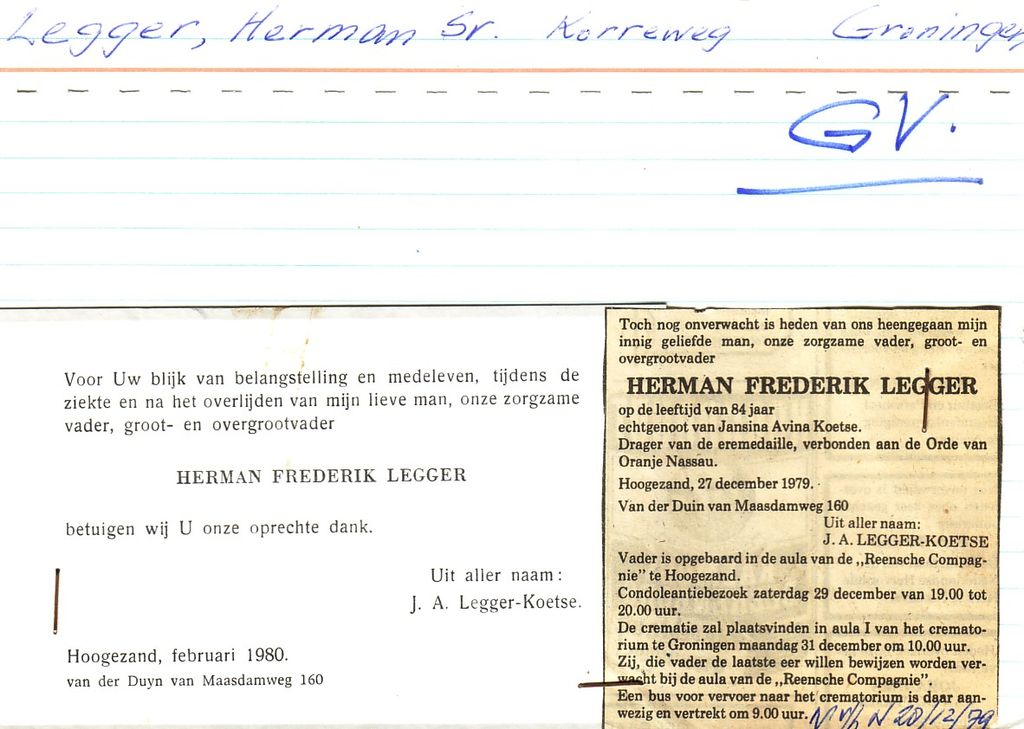 Legger, Herman Sr. Korreweg Groningen
GV.
Voor Uw blijk van belangstelling en medeleven, tijdens de
ziekte en na het overlijden van mijn lieve man, onze zorgzame
vader, groot- en overgrootvader
HERMAN FREDERIK LEGGER
betuigen wij U onze oprechte dank.
Uit aller naam:
J. A. Legger-Koetse.
Hoogezand, februari 1980.
van der Duyn van Maasdamweg 160
Toch nog onverwacht is heden van ons heengegaan mijn
innig geliefde man, onze zorgzame vader, groot- en
overgrootvader
HERMAN FREDERIK LEGGER
op de leeftijd van 84 jaar
echtgenoot van Jansina Avina Koetse.
Drager van de eremedaille, verbonden aan de Orde van
Oranje Nassau.
Hoogezand, 27 december 1979.
Van der Duin van Maasdamweg 160
Uit aller naam:
J. A. LEGGER-KOETSE
Vader is opgebaard in de aula van de „Reensche Compag-
nie” te Hoogezand.
Condoleantiebezoek zaterdag 29 december van 19.00 tot
20.00 uur.
De crematie zal plaatsvinden in aula I van het cremato-
rium te Groningen maandag 31 december om 10.00 uur.
Zij, die vader de laatste eer willen bewijzen worden ver-
wacht bij de aula van de „Reensche Compagnie”.
Een bus voor vervoer naar het crematorium is daar aan-
wezig en vertrekt om 9.00 uur.
/12/79